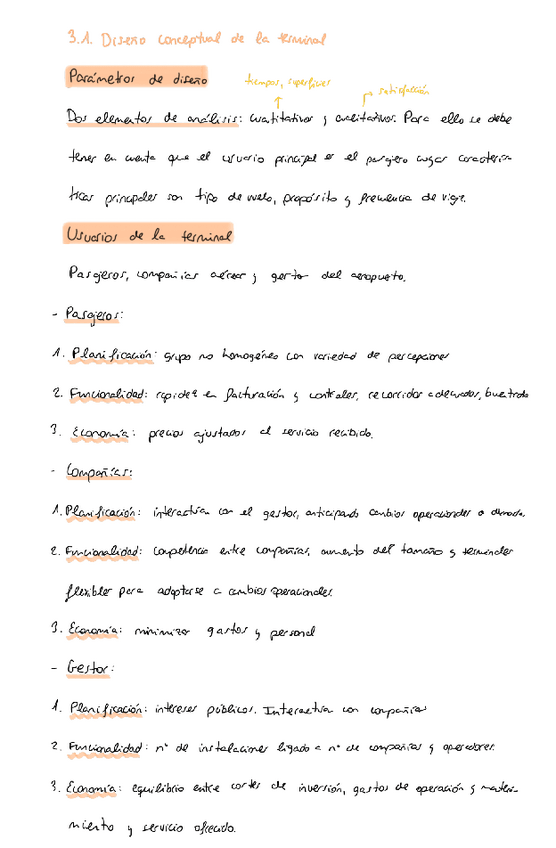 3.1. Diseño conceptual de la terminal
Parámetros de diseño
tiempos, superficies
satisfacción
Dos elementos de análisis: cuatitativos y cualitativos. Para ello se debe
tener en cuenta que el usuario principal es el pasajero cuyas caracterís-
ticas principales son tipo de vuelo, propósito y frecuencia de viaje.
Usuarios de la terminal
Pasajeros, compañías aéreas y gestor del aeropuerto.
- Pasajeros:
1. Planificación: grupo no homogéneo con variedad de percepciones
2. Funcionalidad: rapidez en facturación y controles, recorridos adecuados, buen trato
3. Economía: precios ajustados al servicio recibido.
- Compañías:
1. Planificación: interactúan con el gestor, anticipando cambios operacionales o demanda.
2. Funcionalidad: competencia entre compañías, aumento del tamaño y terminales
flexibles para adaptarse a cambios operacionales.
3. Economía: minimizar gastos y personal
- Gestor:
1. Planificación: intereses públicos. Interactúa con compañías
2. Funcionalidad: nº de instalaciones ligado a nº de compañías y operadores.
3. Economía: equilibrio entre costes de inversión, gastos de operación y manteni-
miento y servicio ofrecido.